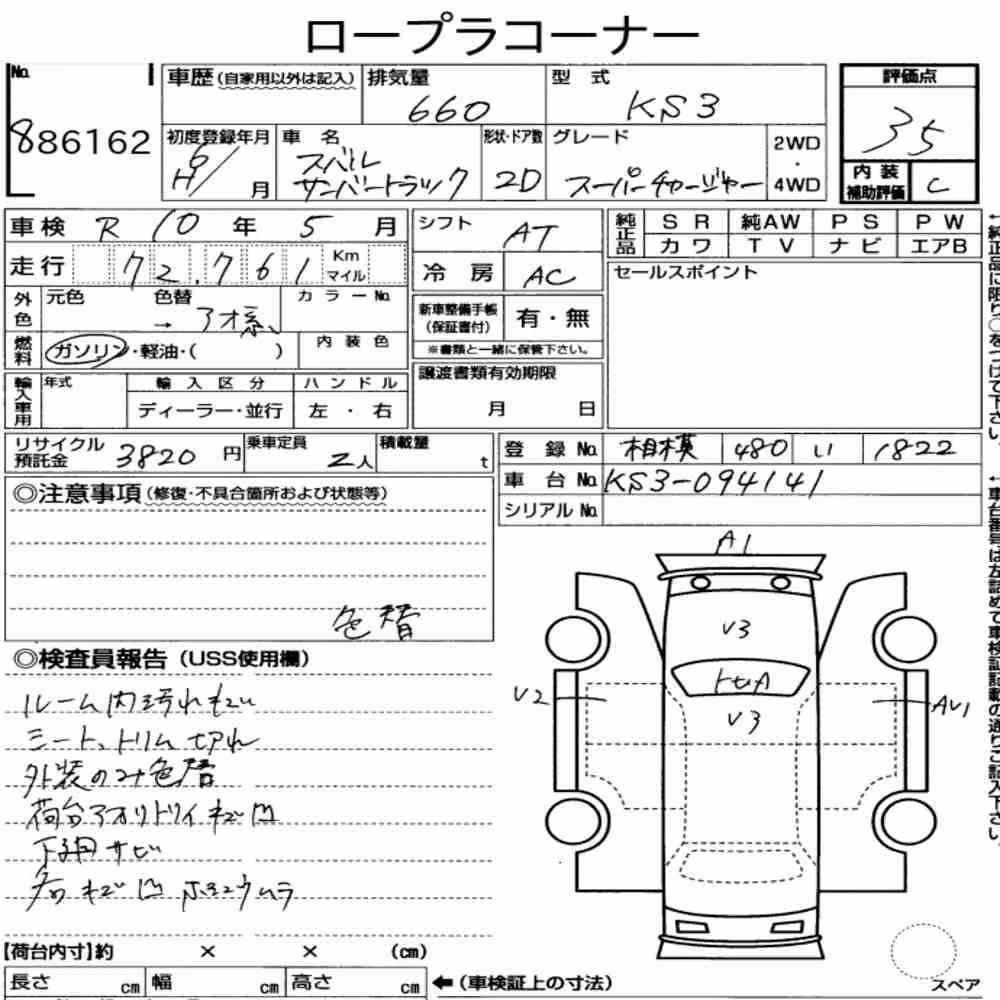 ロープラコーナー
No.
886162
車歴(自家用以外は記入)
排気量
660
型 式
KS3
評価点
35
初度登録年月
H 6/ 月
車 名
スバル
サンバートラック
形状・ドア数
2D
グレード
スーパーチャージャー
2WD
・
4WD
内 装
補助評価
C
車検 R 10 年 5 月
シフト
AT
純正品
SR 純AW PS PW
カワ TV ナビ エアB
走行 72,761 Km
マイル
冷 房
AC
セールスポイント
外色
元色 色替 カラーNo.
→ アオ系
新車整備手帳
(保証書付)
有・無
※書類と一緒に保管下さい。
燃料
ガソリン・軽油・( )
内装色
譲渡書類有効期限
月 日
輸入車用
年式
輸入区分
ハンドル
ディーラー・並行
左・右
リサイクル
預託金
3820 円
乗車定員
2人
積載量
t
登録No. 相模 480 い 1822
車台No. KS3-094141
シリアルNo.
◎注意事項(修復・不具合箇所および状態等)
色替
◎検査員報告(USS使用欄)
ルーム内汚れキズ
シート、トリム切れ
外装のみ色替
荷台アオリトリイキズ凹
下廻サビ
各キズ凹
ムラ
A1
V3
V3
V2
AV1
スペア
【荷台内寸】約 × × (cm)
長さ cm 幅 cm 高さ cm
←(車検証上の寸法)
←純正品に限り○をつけて下さい。
←車台番号は左詰めで車検証記載の通りご記入下さい。